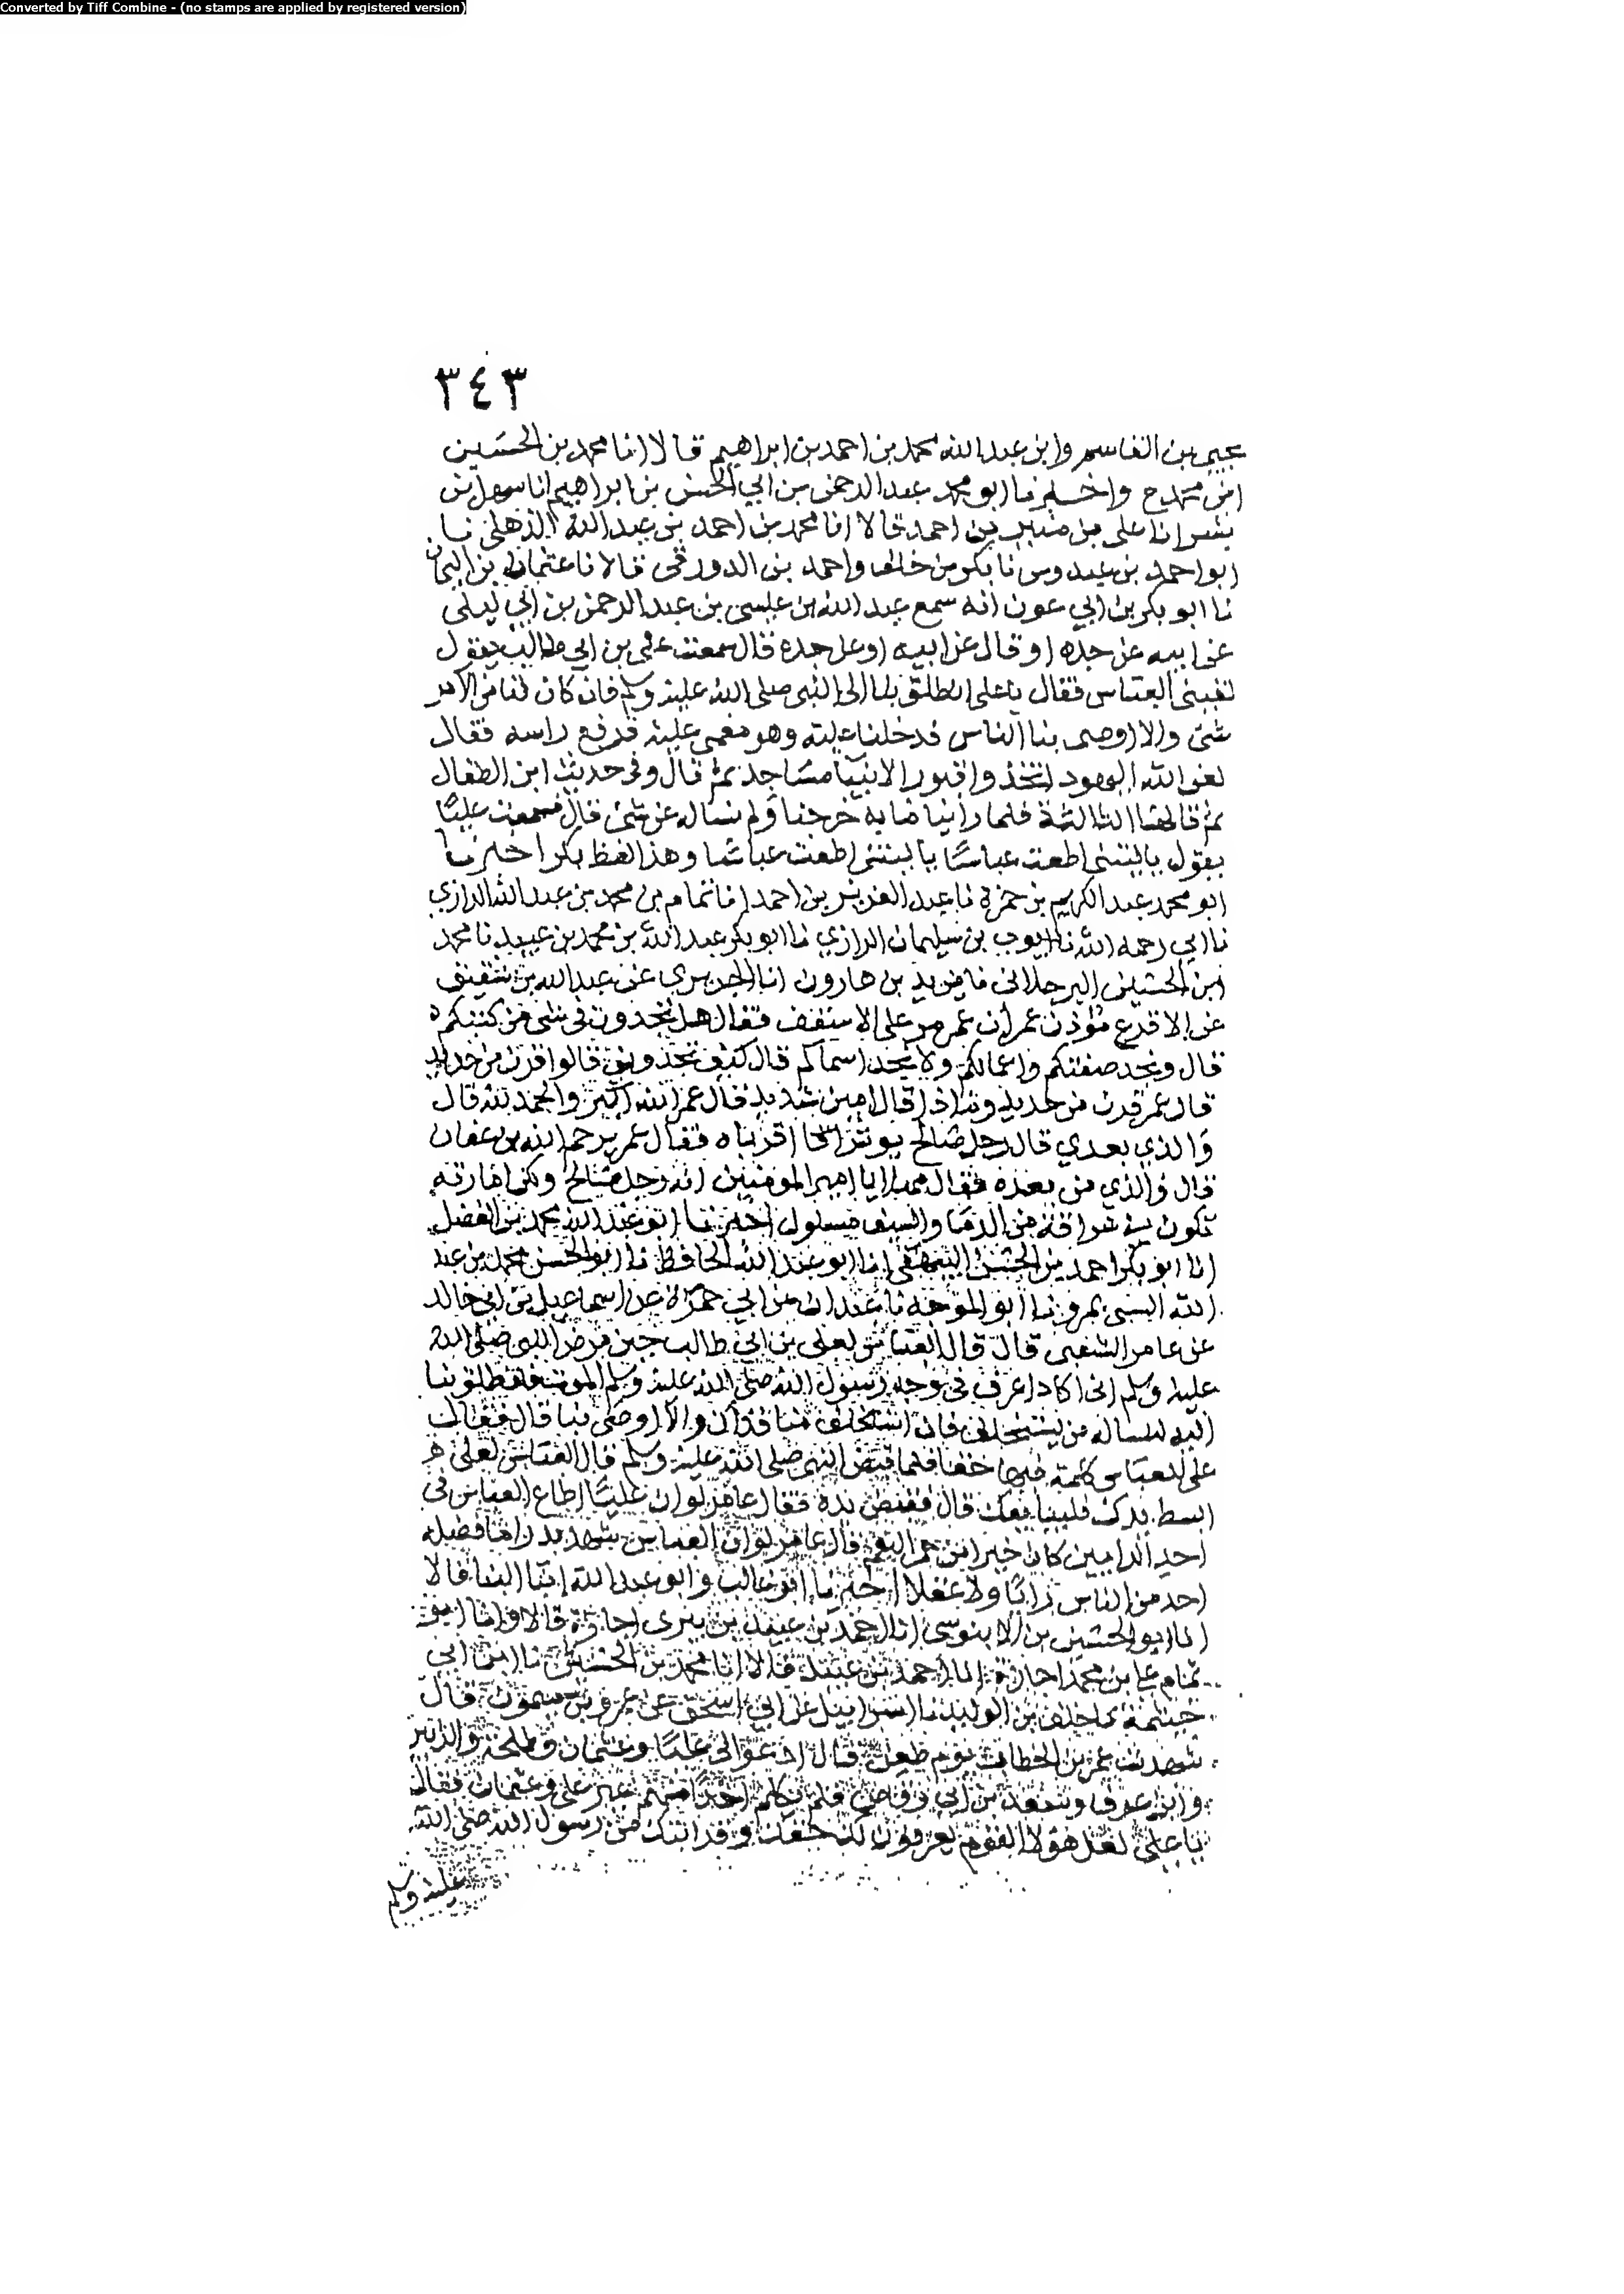 Converted by Tiff Combine - (no stamps are applied by registered version)
٣٤٣
بن القاسم وابن عبد الله محمد بن احمد بن ابراهيم قالا انا محمد بن الحسين
ابن ح واخبرنا ابو محمد عبد الرحمن بن ابي الحسن بن ابراهيم انا سهل بن
بشر انا على بن منير بن احمد قالا انا محمد بن احمد بن عبد الله الذهلى نا
ابو احمد بن عبدوس نا بكر بن خلف واحمد بن الدورقى قالا نا عثمان بن اليمان
نا ابو بكر بن ابي عون انه سمع عبد الله بن عيسى بن عبد الرحمن بن ابي ليلى
عن ابيه عن جده او قال عن ابيه او عن جده قال سمعت على بن ابي طالب يقول
لقينى العباس فقال يا على انطلق بنا الى النبى صلى الله عليه وسلم فان كان لنا من الامر
شئ والا اوصى بنا الناس فدخلنا عليه وهو مغمى عليه فرفع راسه فقال
لعن الله اليهود اتخذوا قبور الانبيا مساجد ثم قال وفى حديث ابن الطفال
ثم قالها الثالثة فلما راينا ما به خرجنا ولم نساله عن شئ قال فسمعت عليًا
يقول ياليتنى اطعت عباسًا ياليتنى اطعت عباسًا وهذا لفظ بكر اخبرنا
ابو محمد عبد الكريم بن حمزة نا عبد العزيز بن احمد انا تمام بن محمد بن عبد الله الرازي
نا ابي رحمه الله نا ايوب بن سليمان الرازي نا ابو بكر عبد الله بن محمد بن عبيد نا محمد
ابن الحسين البرجلانى نا يزيد بن هارون انا الجريرى عن عبد الله بن شقيق
عن الاقرع مؤذن عمر ان عمر مر على الاسقف فقال هل تجدون فى شئ من كتبكم
قال ونجد صفتكم واعمالكم ولا نجد اسماكم قال كيف تجدونى قالوا قرن من حديد
قال عمر قرن من حديد وماذا قال امين شديد قال عمر الله اكبر والحمد لله قال
والذي بعدي قال رجل صالح يوثر اقرباه فقال عمر يرحم الله بن عفان
قال والذي من بعده فقال يا امير المومنين انه رجل صالح ولكن امارته
تكون فى هراقة من الدما والسيف مسلول اخبرنا ابو عبد الله محمد بن الفضل
انا ابو بكر احمد بن الحسين البيهقى انا ابو عبد الله الحافظ نا ابو الحسن محمد بن عبد
الله السنى بمرو نا ابو الموجه نا عبدان عن ابي حمزة عن اسماعيل بن ابي خالد
عن عامر الشعبى قال قال العباس لعلى بن ابي طالب حين مرض النبى صلى الله
عليه وسلم انى اكاد اعرف فى وجه رسول الله صلى الله عليه وسلم الموت فانطلق بنا
اليه لنساله من يستخلف فان استخلف منا فذاك والا اوصى بنا قال فقال
على للعباس كلمة فيها جفا فلما قبض النبى صلى الله عليه وسلم قال العباس لعلى
ابسط يدك فلنبايعك قال فقبض يده فقال عامر لو ان عليًا اطاع العباس فى
احد الرايين كان خيرا من حمر النعم قال عامر لو ان العباس شهد بدرا ما فضله
احد من الناس رايًا ولا عقلا اخبرنا ابو غالب وابو عبد الله ابنا البنا قالا
انا ابو الحسين بن الابنوسى انا احمد بن عبيد بن بيرى اجازة قالا وانا ابو
تمام على بن محمد اجازة انا احمد بن عبيد قالا انا محمد بن الحسين نا ابن ابي
خيثمة نا خلف بن الوليد نا اسرائيل عن ابي اسحق عن عمرو بن ميمون قال
شهدت عمر بن الخطاب يوم طعن قال ادعوا لى عليًا وعثمان وطلحة والزبير
وابن عوف وسعد بن ابي وقاص فلم يكلم احدًا منهم غير على وعثمان فقال
يا على لعل هؤلا القوم يعرفون لك حقك وقرابتك من رسول الله صلى الله
عليه وسلم